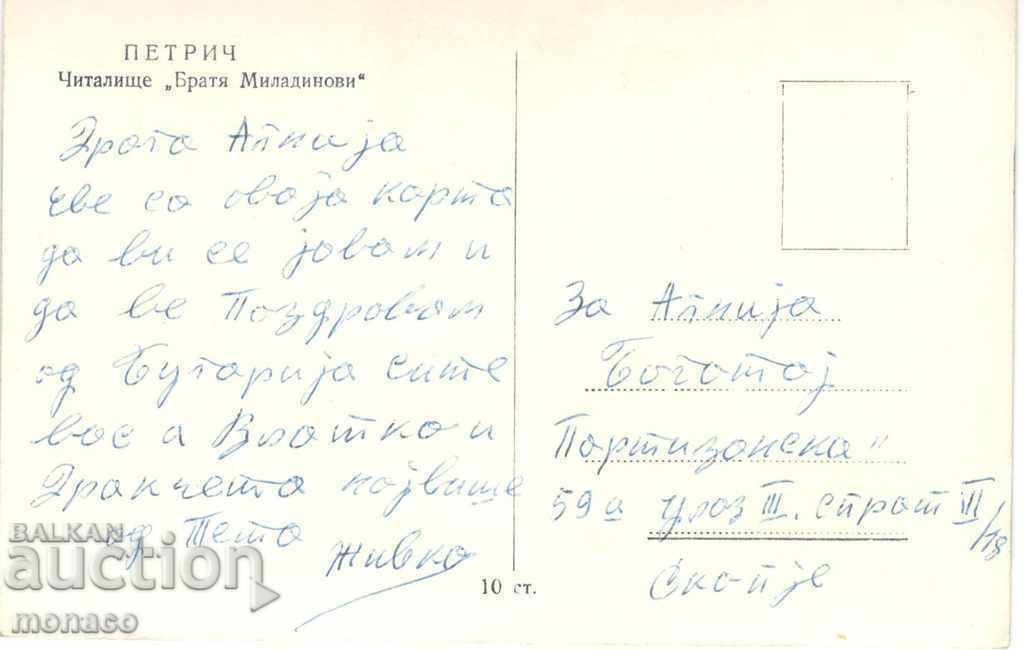 ПЕТРИЧ
Читалище „Братя Миладинови“
Драга Алкија
еве со оваја карта
да ви се јавам и
да ве Поздравам
од Бугарија сите
вас а Влатко и
Драгчета највише
од Тета
Живка
10 ст.
За Алкија
Богатој
Партизанска"
59а улаз III. спрат III/18
Скопје
BALKAN
auction
monaco